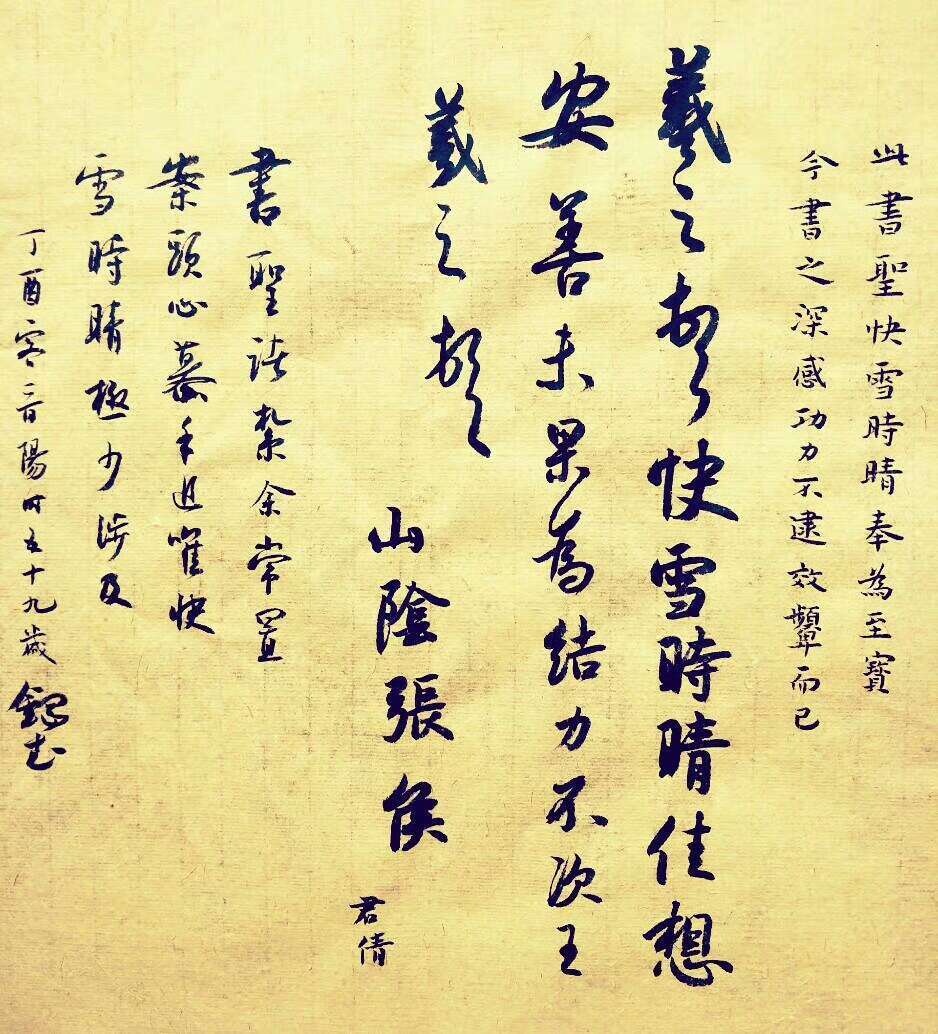 此書聖快雪時晴奉為至寶
今書之深感功力不逮效顰而已
羲之頓首快雪時晴佳想
安善未果為結力不次王
羲之頓首
山陰張侯
君倩
書聖諸紮余常置
案頭心慕手追唯快
雪時晴極少涉及
丁酉零二音陽時五十九歲